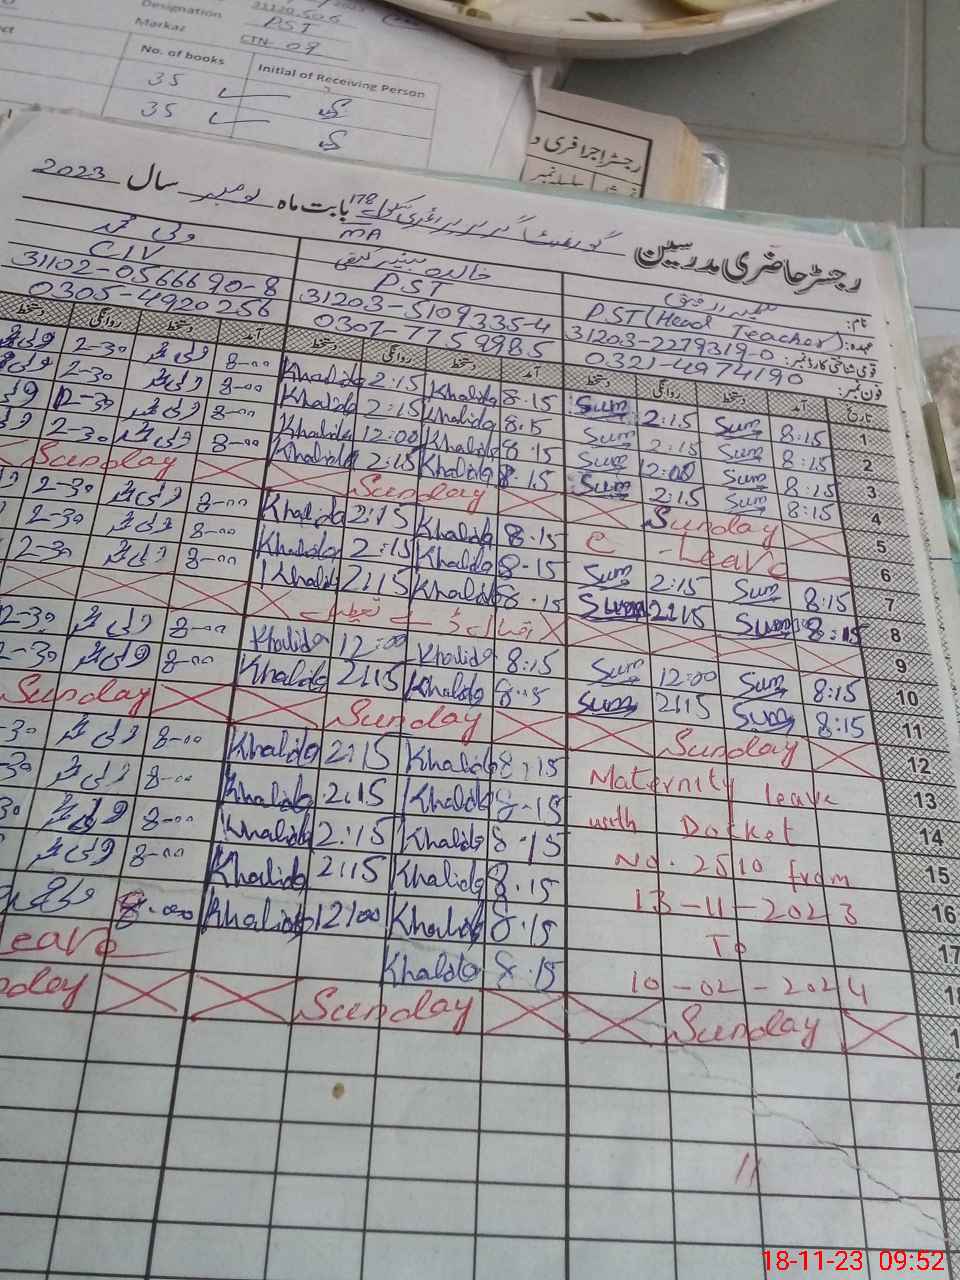 Designation
PST
Markaz
CTN-09
No. of books
Initial of Receiving Person
35
35
رجسٹر اجرا فری و
رجسٹر حاضری مدرسین بابت ماہ نومبر سال 2023
نام:
PST (Head Teacher) عہدہ:
31203-2279319-0 قومی شناختی کارڈ نمبر:
0321-4974190 فون نمبر:
PST
31203-5109335-4
0307-7759985
CIV
31102-0566690-8
0305-4920256
تاریخ آمد دستخط روانگی دستخط آمد دستخط روانگی دستخط آمد دستخط روانگی دستخط
1 8:15 Sum 2:15 Sum 8.15 Khalida 2:15 Khalida 8-00 2-30
2 8:15 Sum 2:15 Sum 8.15 Khalida 2:15 Khalida 8-00 2-30
3 8:15 Sum 12:00 Sum 8.15 Khalida 12:00 Khalida 8-00 12-30
4 8:15 Sum 2:15 Sum 8.15 Khalida 2:15 Khalida 8-00 2-30
5 Sunday Sunday Sunday
6 C-Leave 8.15 Khalida 2:15 Khalida 8-00 2-30
7 8:15 Sum 2:15 Sum 8-15 Khalida 2:15 Khalida 8-00 2-30
8 8:15 Sum 2:15 Sum 8.15 Khalida 2:15 Khalida 8-00 2-30
9 اقبال ڈے تعطیل
10 8:15 Sum 12:00 Sum 8:15 Khalida 12:00 Khalida 8-00 2-30
11 8:15 Sum 2:15 Sum 8.15 Khalida 2:15 Khalida 8-00 2-30
12 Sunday Sunday Sunday
13 Maternity leave 8:15 Khalida 2:15 Khalida 8-00 -30
14 with Docket 8-15 Khalida 2:15 Khalida 8-00 -30
15 No. 2510 from 8.15 Khalida 2:15 Khalida 8-00 30
16 13-11-2023 8.15 Khalida 2:15 Khalida 8-00
17 To 8.15 Khalida 12:00 Khalida 8-00
18 10-02-2024 8.15 Khalida Leave
Sunday Sunday Sunday
18-11-23 09:52